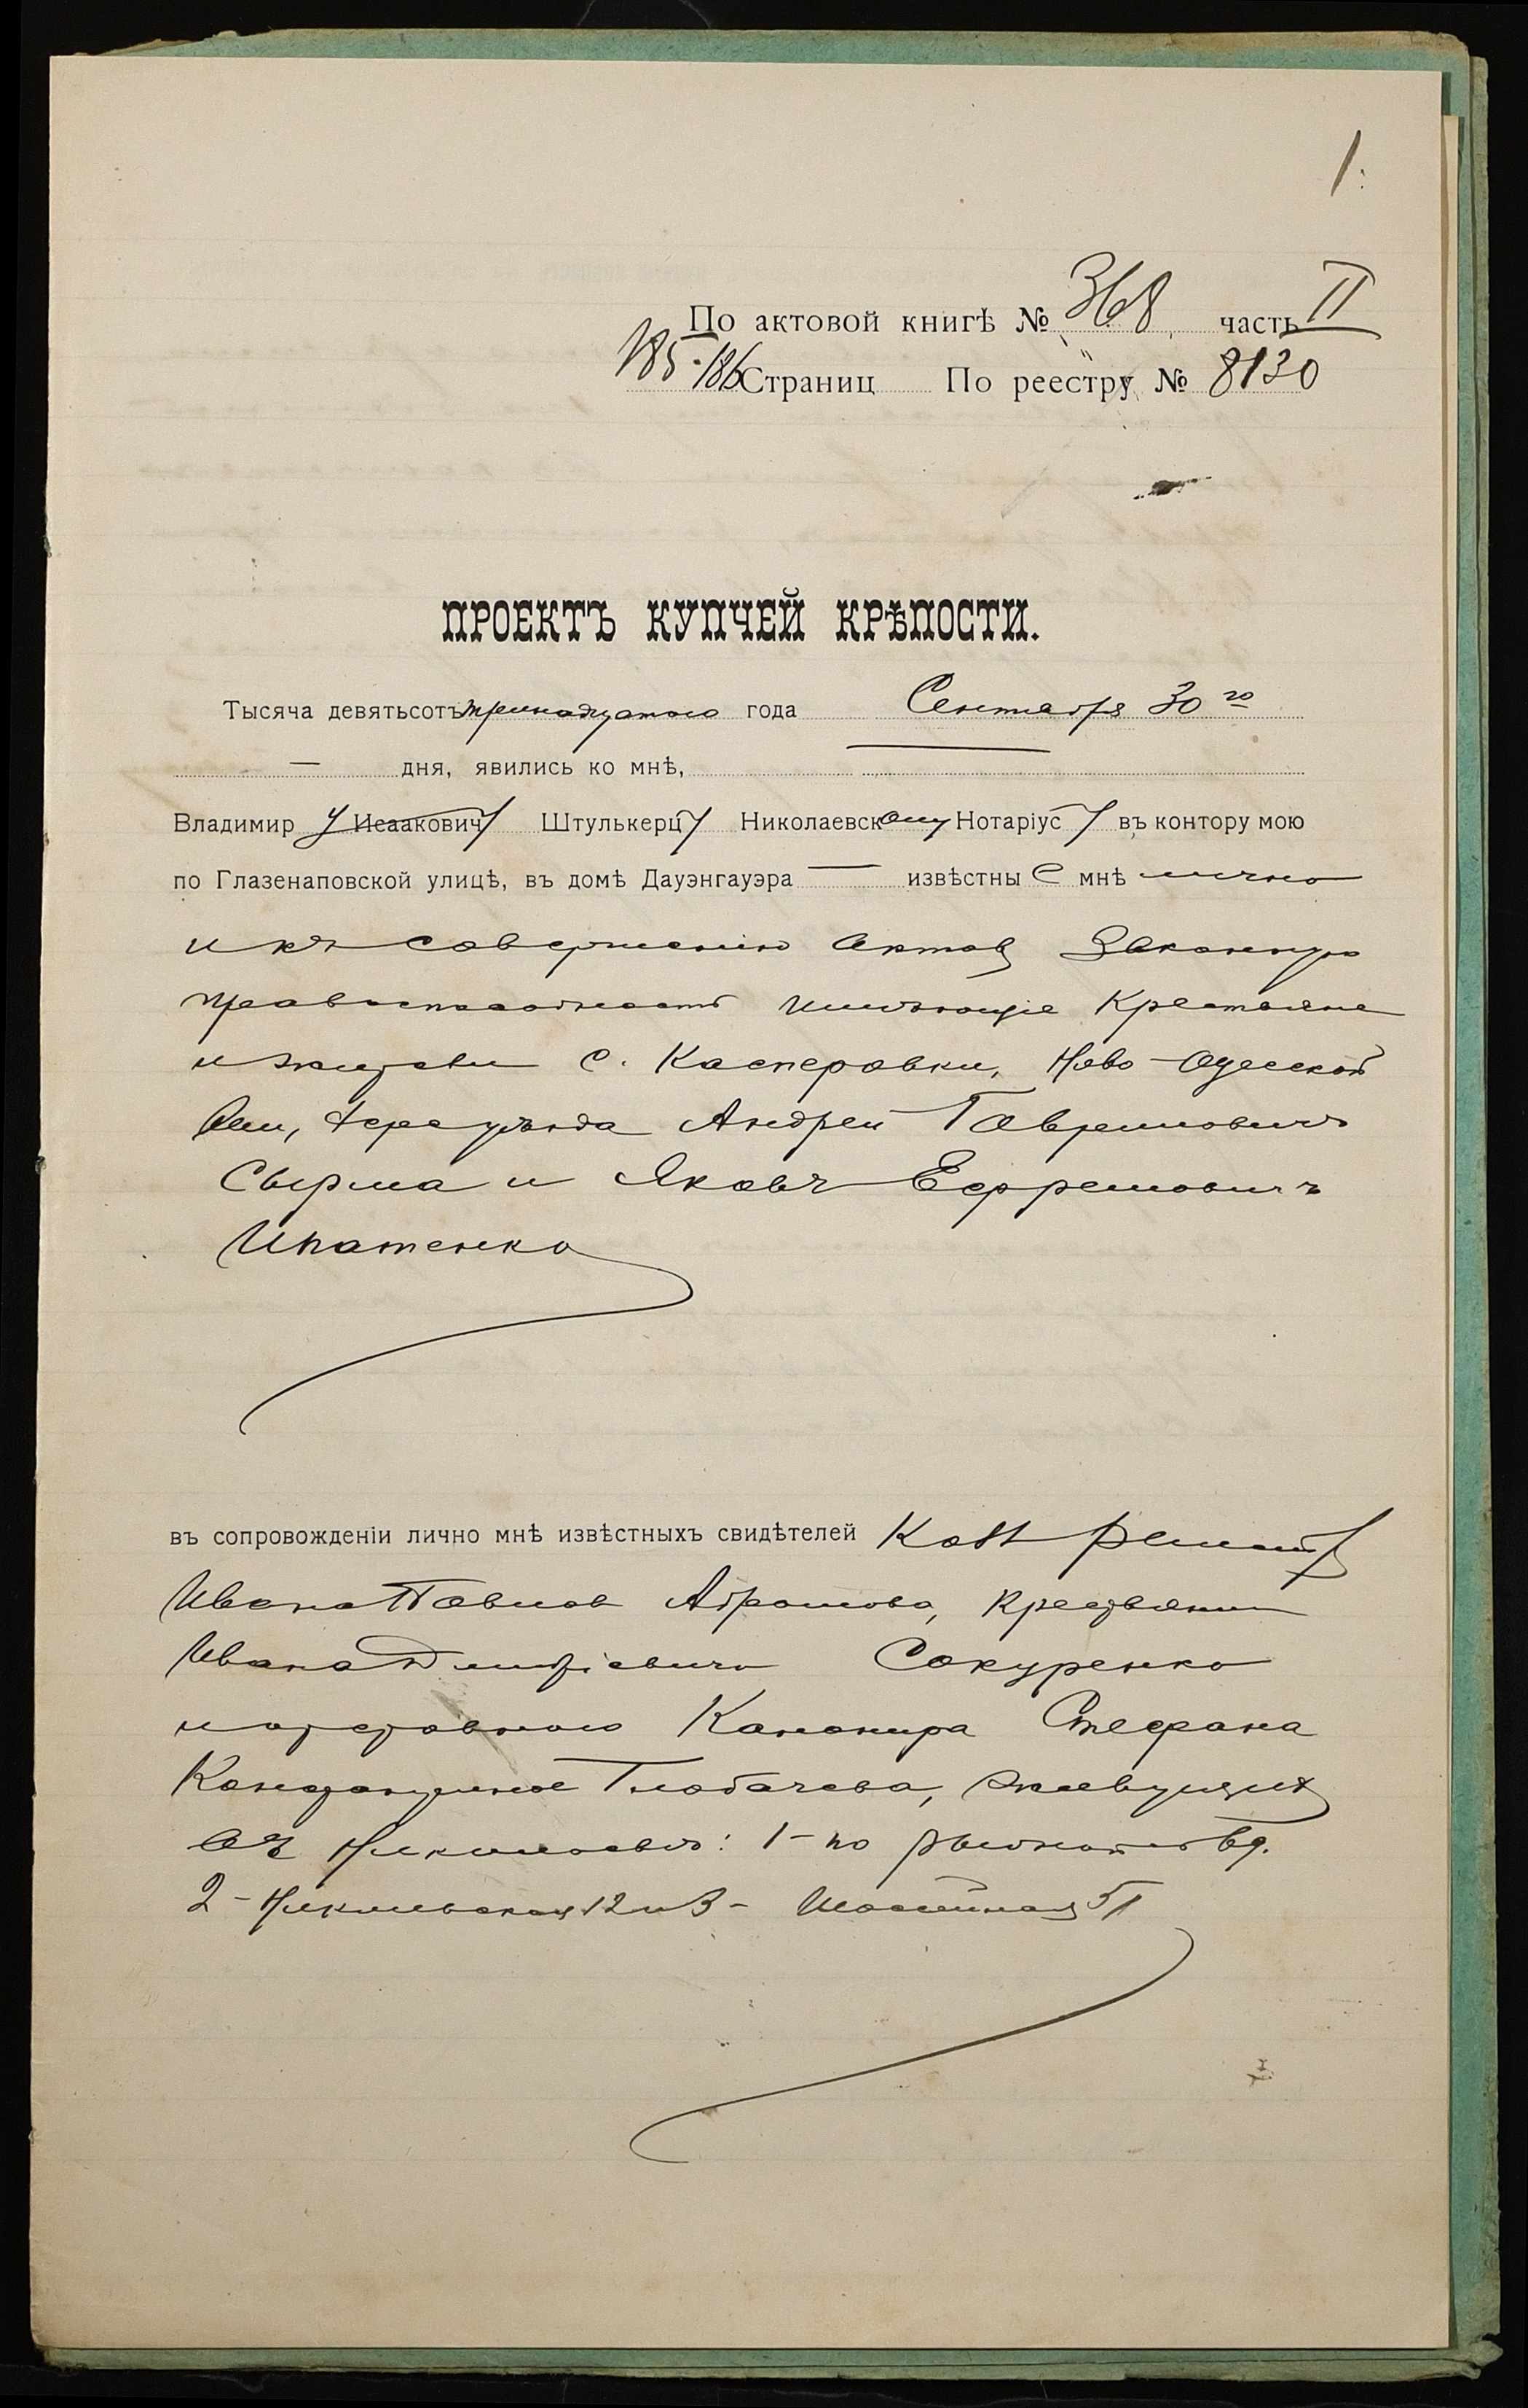 1.
По актовой книгѣ № 368 часть II
185-186 Страниц По реестру № 8130
ПРОЕКТЪ КУПЧЕЙ КРѢПОСТИ.
Тысяча девятьсотъ тринадцатого года Сентября 30 го
— дня, явились ко мнѣ,
Владимир у Исаакович у Штулькерц у Николаевск ому Нотаріус у въ контору мою
по Глазенаповской улицѣ, въ домѣ Дауэнгауэра — извѣстны е мнѣ лично
и къ совершенію актов законную
правоспособность имѣющіе Крестьяне
и жители с. Касперовки, Ново-Одесской
вол, Херс уѣзда Андрей Гаврилович
Сырма и Яковъ Ефремович
Ипатенко
въ сопровожденіи лично мнѣ извѣстныхъ свидѣтелей
Ивана Павлов Абрамова, крестьянин
Ивана Дмитріевича Сокуренко
и отставного Канонира Стефана
Глобачева, живущих
въ Николаевѣ: 1-по
2- 12 и 3-